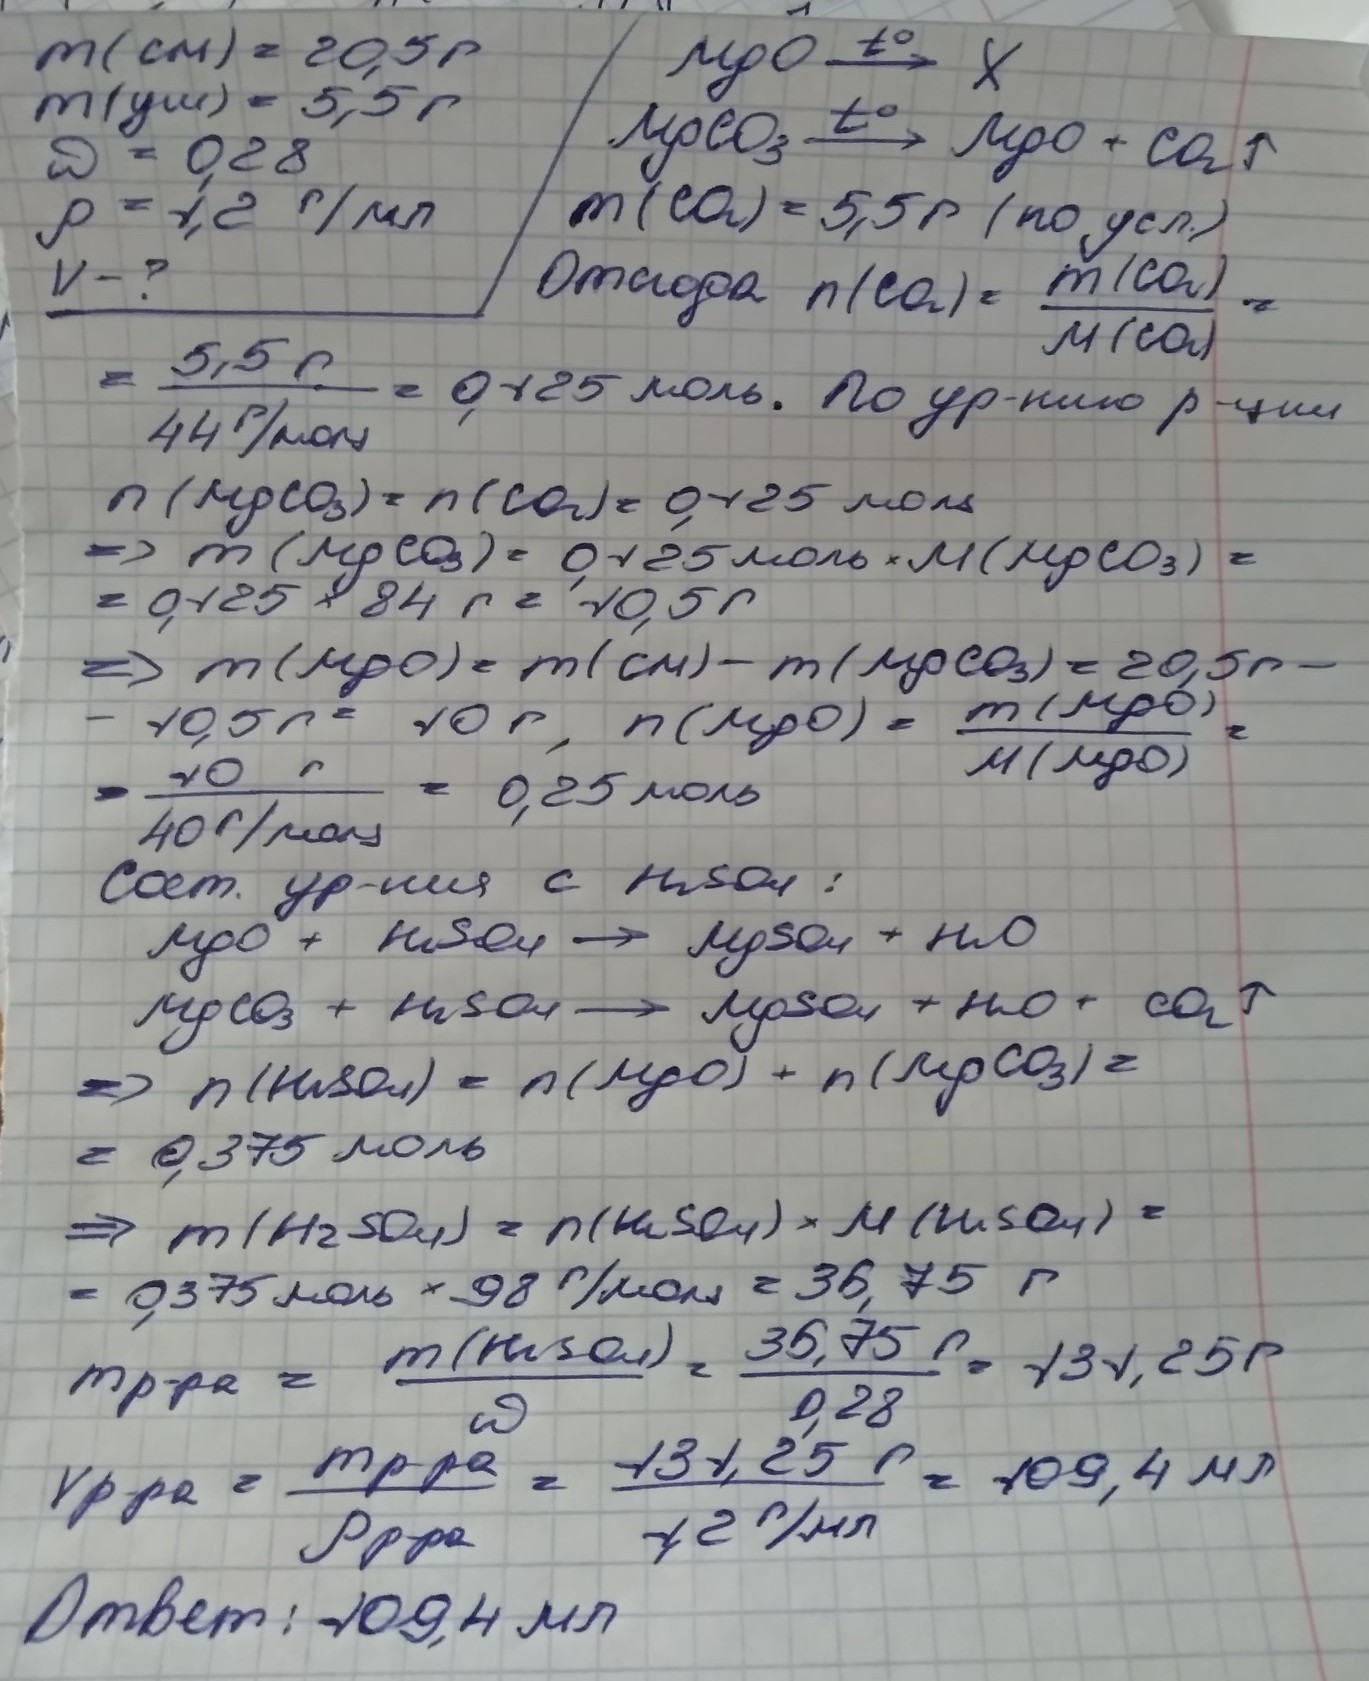 m(см) = 20,5 г
m(ум) = 5,5 г
ω = 0,28
ρ = 1,2 г/мл
V - ?
MgO t°→ X
MgCO3 t°→ MgO + CO2↑
m(CO2) = 5,5 г (по усл.)
Отсюда n(CO2) = m(CO2)/M(CO2) =
= 5,5 г/44 г/моль = 0,125 моль. По ур-нию р-ции
n(MgCO3) = n(CO2) = 0,125 моль
=> m(MgCO3) = 0,125 моль × M(MgCO3) =
= 0,125 × 84 г = 10,5 г
=> m(MgO) = m(см) - m(MgCO3) = 20,5 г -
- 10,5 г = 10 г, n(MgO) = m(MgO)/M(MgO) =
= 10 г/40 г/моль = 0,25 моль
Сост. ур-ния с H2SO4:
MgO + H2SO4 → MgSO4 + H2O
MgCO3 + H2SO4 → MgSO4 + H2O + CO2↑
=> n(H2SO4) = n(MgO) + n(MgCO3) =
= 0,375 моль
=> m(H2SO4) = n(H2SO4) × M(H2SO4) =
= 0,375 моль × 98 г/моль = 36,75 г
mр-ра = m(H2SO4)/ω = 36,75 г/0,28 = 131,25 г
Vр-ра = mр-ра/ρр-ра = 131,25 г/1,2 г/мл = 109,4 мл
Ответ: 109,4 мл